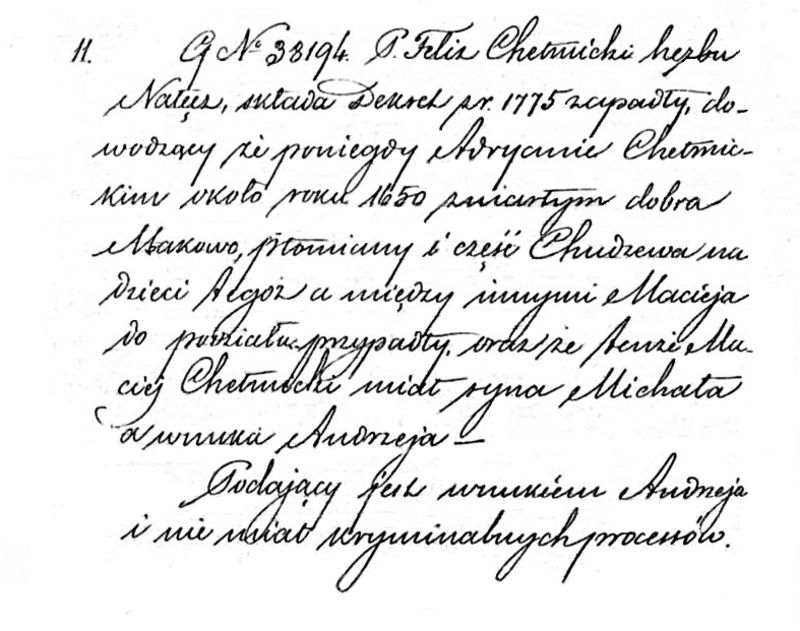 11. G No 38194. P. Felix Chełmicki herbu
Nałęcz, składa Dekret z r. 1775 zapadły, do-
wodzący że poniegdy Adryanie Chełmic-
kim około roku 1650 zmarłym dobra
Makowo, Płomiany i część Chudzewa na
dzieci tegoż a między innymi Macieja
do podziału przypadły, oraz że tenże Ma-
ciej Chełmicki miał syna Michała
a wnuka Andrzeja —
Podający jest wnukiem Andrzeja
i nie miał kryminalnych processów.